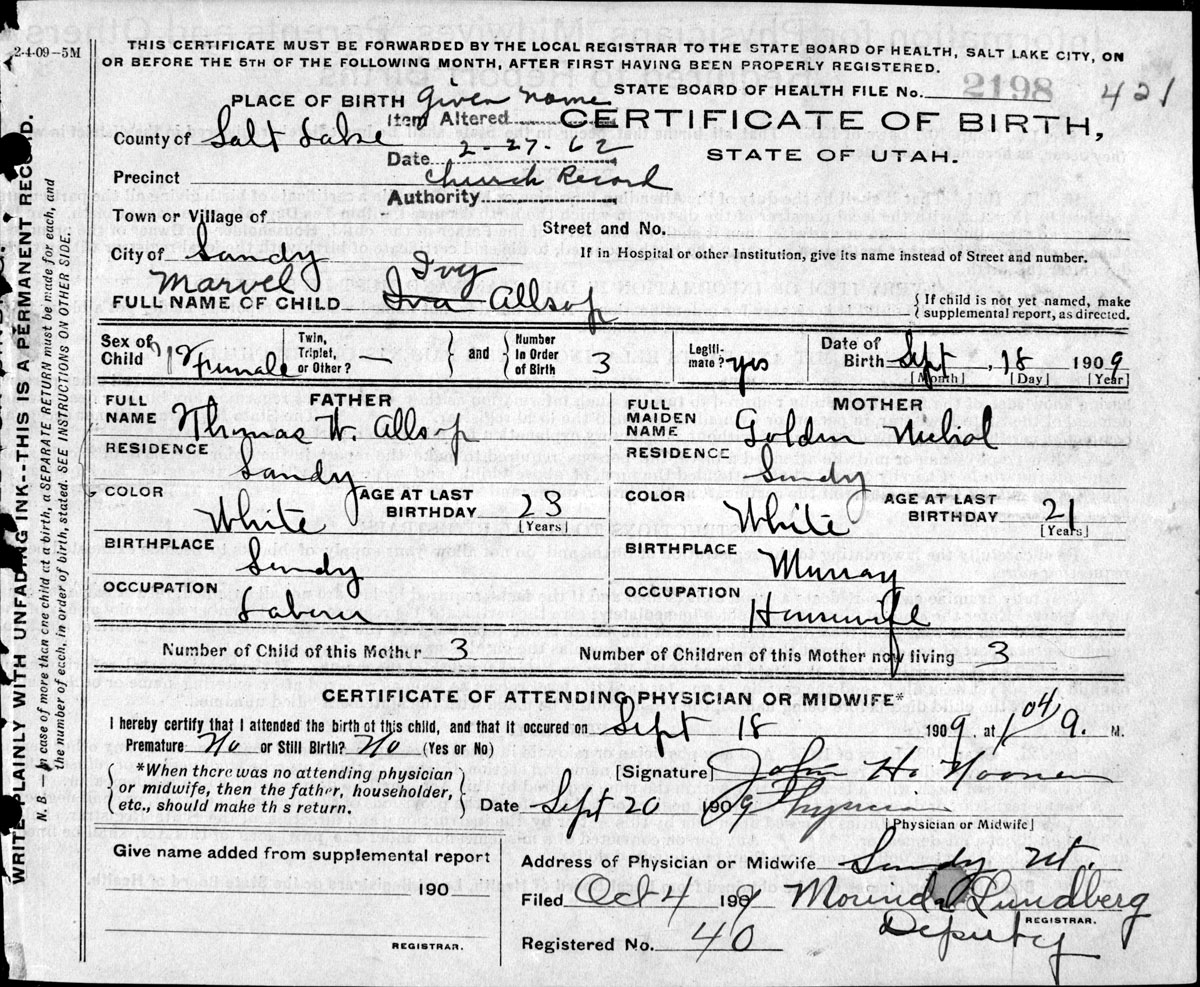 2-4-09-5M
THIS CERTIFICATE MUST BE FORWARDED BY THE LOCAL REGISTRAR TO THE STATE BOARD OF HEALTH, SALT LAKE CITY, ON
OR BEFORE THE 5TH OF THE FOLLOWING MONTH, AFTER FIRST HAVING BEEN PROPERLY REGISTERED.
STATE BOARD OF HEALTH FILE No. 2198 421
PLACE OF BIRTH
Given name
Item Altered
CERTIFICATE OF BIRTH,
STATE OF UTAH.
County of Salt Lake
Date 2-27-62
Precinct
Church Record
Authority
Town or Village of
Street and No.
City of Sandy
If in Hospital or other Institution, give its name instead of Street and number.
Marvel Ivy
FULL NAME OF CHILD Iva Allsop
{If child is not yet named, make
supplemental report, as directed.
Sex of Child Female
Twin, Triplet, or Other? —
and
Number in Order of Birth 3
Legitimate? yes
Date of Birth Sept, 18 1909
[Month] [Day] [Year]
FATHER
FULL NAME Thomas W. Allsop
RESIDENCE Sandy
COLOR White
AGE AT LAST BIRTHDAY 23
[Years]
BIRTHPLACE Sandy
OCCUPATION Laborer
MOTHER
FULL MAIDEN NAME Golden
RESIDENCE Sandy
COLOR White
AGE AT LAST BIRTHDAY 21
[Years]
BIRTHPLACE Murray
OCCUPATION Housewife
Number of Child of this Mother 3
Number of Children of this Mother now living 3
CERTIFICATE OF ATTENDING PHYSICIAN OR MIDWIFE*
I hereby certify that I attended the birth of this child, and that it occured on Sept 18 1909, at M.
Premature No or Still Birth? No (Yes or No)
{*When there was no attending physician
or midwife, then the father, householder,
etc., should make th s return.}
[Signature] John H.
Date Sept 20 1909 Physician
[Physician or Midwife]
Give name added from supplemental report
190
REGISTRAR.
Address of Physician or Midwife Sandy Ut.
Filed Oct 4 1909 Lundberg
REGISTRAR.
Deputy
Registered No. 40
WRITE PLAINLY WITH UNFADING INK--THIS IS A PERMANENT RECORD.
N. B.—In case of more than one child at a birth, a SEPARATE RETURN must be made for each, and
the number of each, in order of birth, stated. SEE INSTRUCTIONS ON OTHER SIDE.